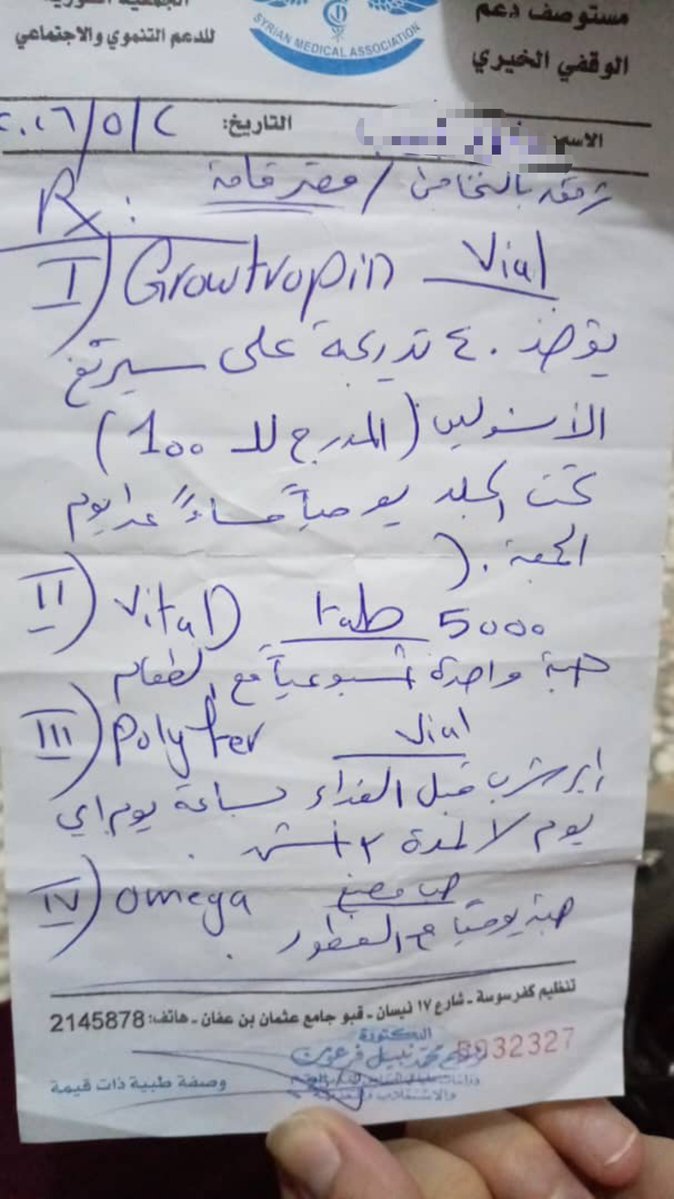 مستوصف دعم
الوقفي الخيري
للدعم التنموي والاجتماعي
SYRIAN MEDICAL ASSOCIATION
الاسم
التاريخ: ٢٠٢٦/٥/٢
قصر قامة
Rx:
I) Growtropin Vial
يؤخذ ٤٠ تدريجة على سيرنغ
الأنسولين (المدرج للـ 100)
تحت الجلد يومياً مساءً عدا يوم
الجمعة.)
II) Vital D tab 5000
حبة واحدة أسبوعياً مع الطعام
III) Polyfer Vial
ابر شرب قبل الغداء بساعة يوم اي
يوم لا لمدة ٣
IV) omega حب مضغ
حبة يومياً مع الفطور.
تنظيم كفرسوسة - شارع ١٧ نيسان - قبو جامع عثمان بن عفان - هاتف: 2145878
الدكتورة
محمد نبيل
032327
وصفة طبية ذات قيمة